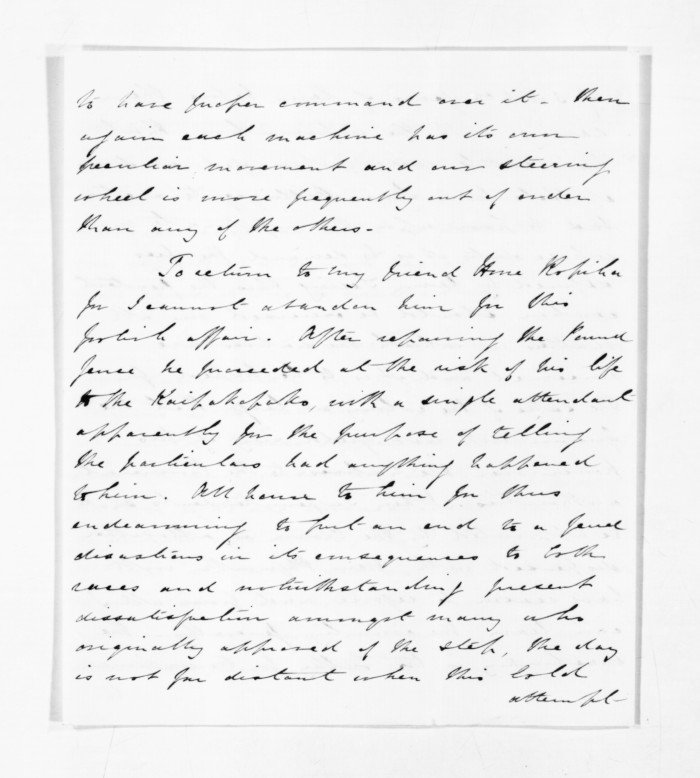 to have proper command over it - then
again each machine has its own
peculiar movement and our steering
wheel is more frequently out of order
than any of the others -
To return to my friend Hone Ropiha
for I cannot abandon him for this
foolish affair. After repairing the Pound
fence he proceeded at the risk of his life
to the Kaipakopako, with a single attendant
apparently for the purpose of telling
the particulars had anything happened
to him. All honor to him for thus
endeavouring to put an end to a feud
disastrous in its consequences to both
races and notwithstanding present
dissatisfaction amongst many who
originally approved of the step, the day
is not far distant when this bold
attempt